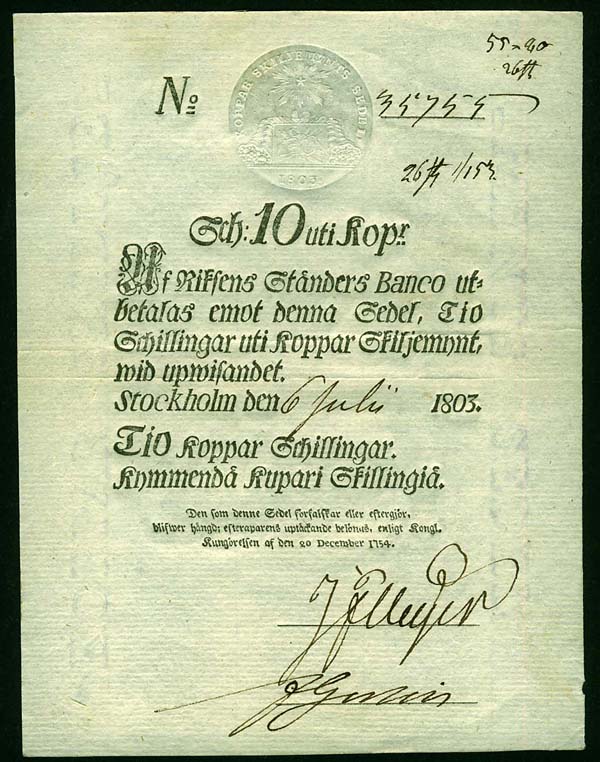 55-20
26ff
KOPPAR SKILJEMYNTS SEDEL
1803
No 35755
Sch: 10 uti Kopr.
Af Riksens Ständers Banco ut=
betalas emot denna Sedel, Tio
Schillingar uti Koppar Skiljemynt,
wid upwisandet.
Stockholm den 6 Julii 1803.
Tio Koppar Schillingar.
Kymmendä Kupari Skillingiä.
Den som denne Sedel förfalskar eller eftergiör,
blifwer hängd; efteraparens uptäckande belönas, enligt Kongl.
Kungörelsen af den 20 December 1754.